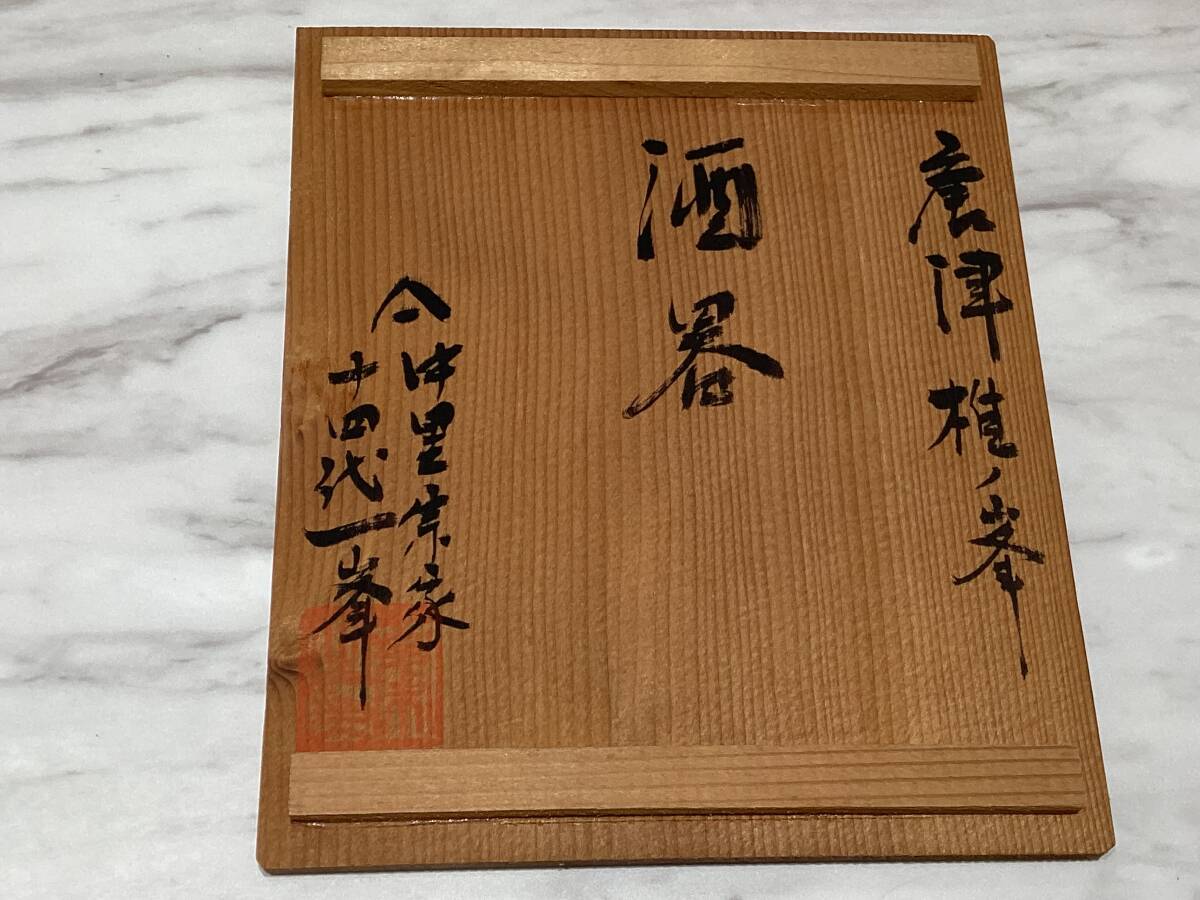 唐津椎ノ峯
酒器
仝 中里宗家
十四代一峯